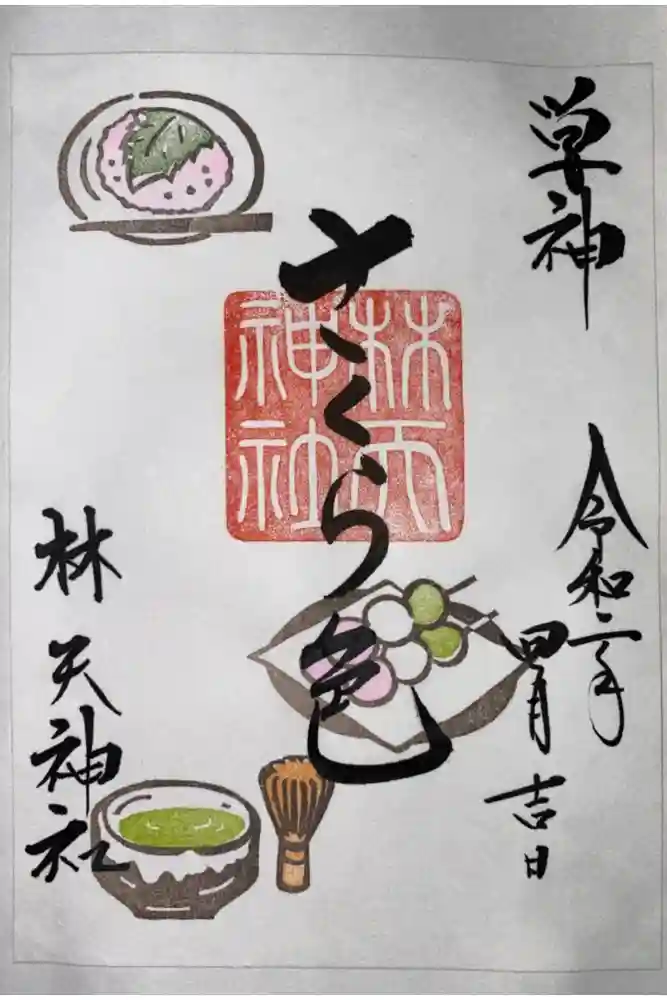 草神
令和二年
四月吉日
さくら色
林天
神社
林天神社